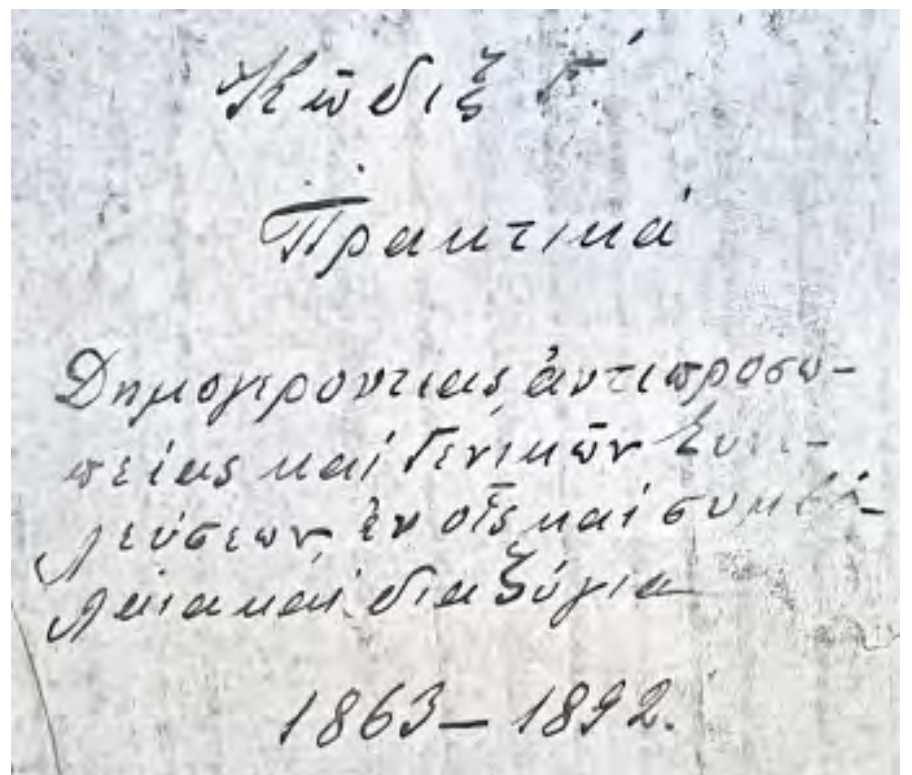 Κῶδιξ Γ΄
Πρακτικά
Δημογεροντίας, ἀντιπροσω-
πείας καί Γενικῶν Συνε-
λεύσεων, ἐν οἷς καί συμβό-
λαια καί διαζύγια
1863 – 1892.